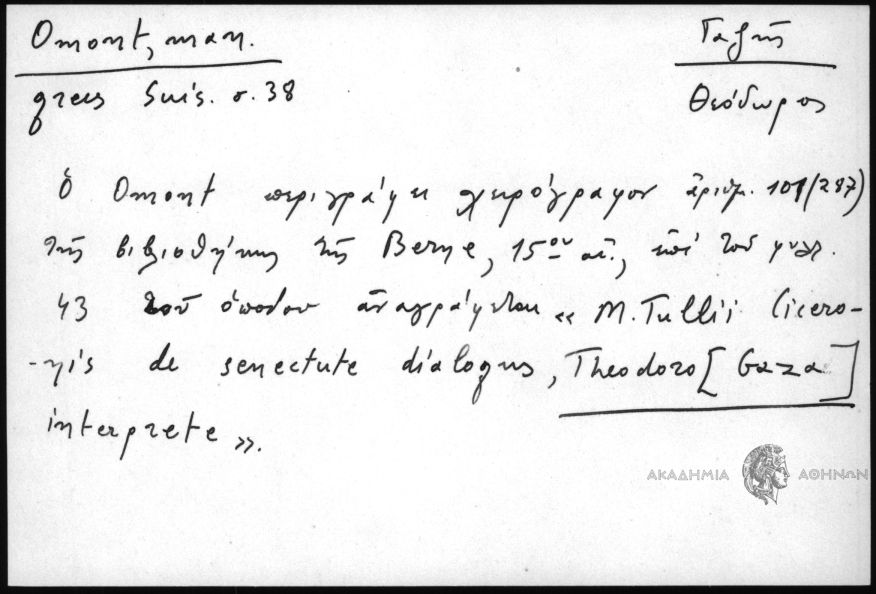 Omont, man.
grecs Suis. σ. 38
Γαζῆς
Θεόδωρος
Ὁ Omont περιγράφει χειρόγραφον ἀριθμ. 101 (287)
τῆς βιβλιοθήκης τῆς Berne, 15ου αἰ., ἐπί τοῦ φυλλ.
43 τοῦ ὁποίου ἀναγράφεται « M. Tullii Cicero-
-nis de senectute dialogus, Theodoro [Gaza]
interprete ».
ΑΚΑΔΗΜΙΑ ΑΘΗΝΩΝ